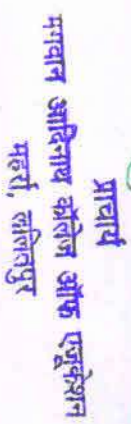 प्राचार्य
भगवान आदिनाथ कॉलेज ऑफ एजुकेशन
महर्रा, ललितपुर